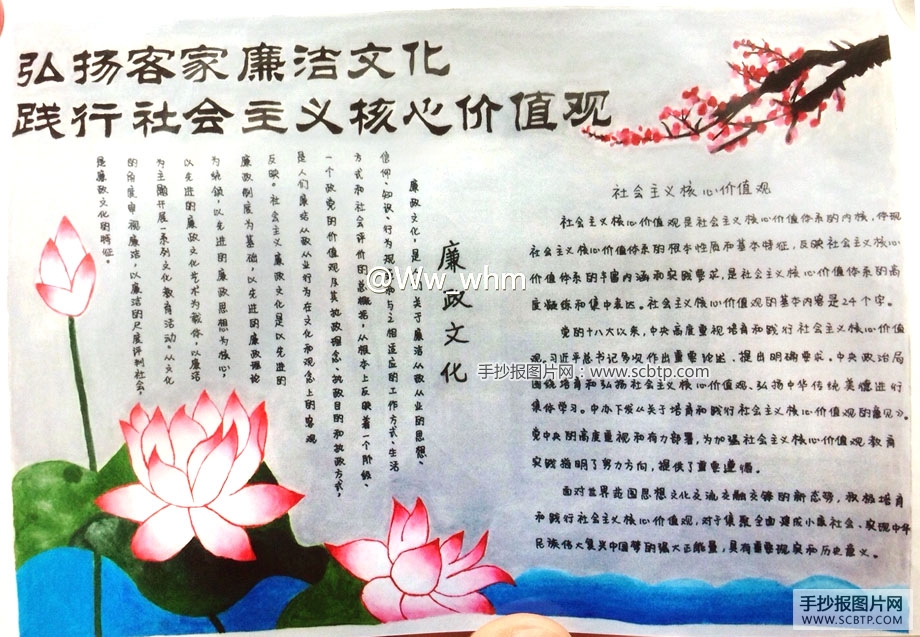 弘扬客家廉洁文化
践行社会主义核心价值观
廉政文化
廉政文化,是人们关于廉洁从政从业的思想、
信仰、知识、行为规范和与之相适应的工作方式、生活
方式和社会评价的总概括,从根本上反映着一个阶级、
一个政党的价值观及其执政理念、执政目的和执政方式,
是人们廉洁从政从业行为在文化和观念上的客观
反映。社会主义廉政文化是以先进的
廉政制度为基础,以先进的廉政理论
为统领,以先进的廉政思想为核心,
以先进的廉政文化艺术为载体,以廉洁
为主题开展一系列文化教育活动。从文化
的角度审视廉洁,以廉洁的尺度评判社会,
是廉政文化的特征。
社会主义核心价值观
社会主义核心价值观是社会主义核心价值体系的内核,体现
社会主义核心价值体系的根本性质和基本特征,反映社会主义核心
价值体系的丰富内涵和实践要求,是社会主义核心价值体系的高
度凝练和集中表达。社会主义核心价值观的基本内容是24个字。
党的十八大以来,中央高度重视培育和践行社会主义核心价值
观。习近平总书记多次作出重要论述、提出明确要求。中央政治局
围绕培育和弘扬社会主义核心价值观、弘扬中华传统美德进行
集体学习。中办下发《关于培育和践行社会主义核心价值观的意见》。
党中央的高度重视和有力部署,为加强社会主义核心价值观教育
实践指明了努力方向,提供了重要遵循。
面对世界范围思想文化交流交融交锋的新态势,积极培育
和践行社会主义核心价值观,对于集聚全面建成小康社会、实现中华
民族伟大复兴中国梦的强大正能量,具有重要现实和历史意义。
@Ww_whm
手抄报图片网:www.scbtp.com
手抄报图片网
WWW.SCBTP.COM